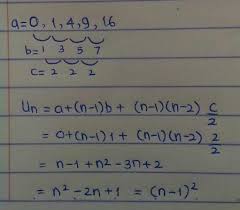 a=0, 1, 4, 9, 16
b=1 3 5 7
c=2 2 2
Un = a+(n-1)b + (n-1)(n-2) c/2
= 0+(n-1)1 + (n-1)(n-2) 2/2
= n-1+n²-3n+2
= n²-2n+1 = (n-1)²